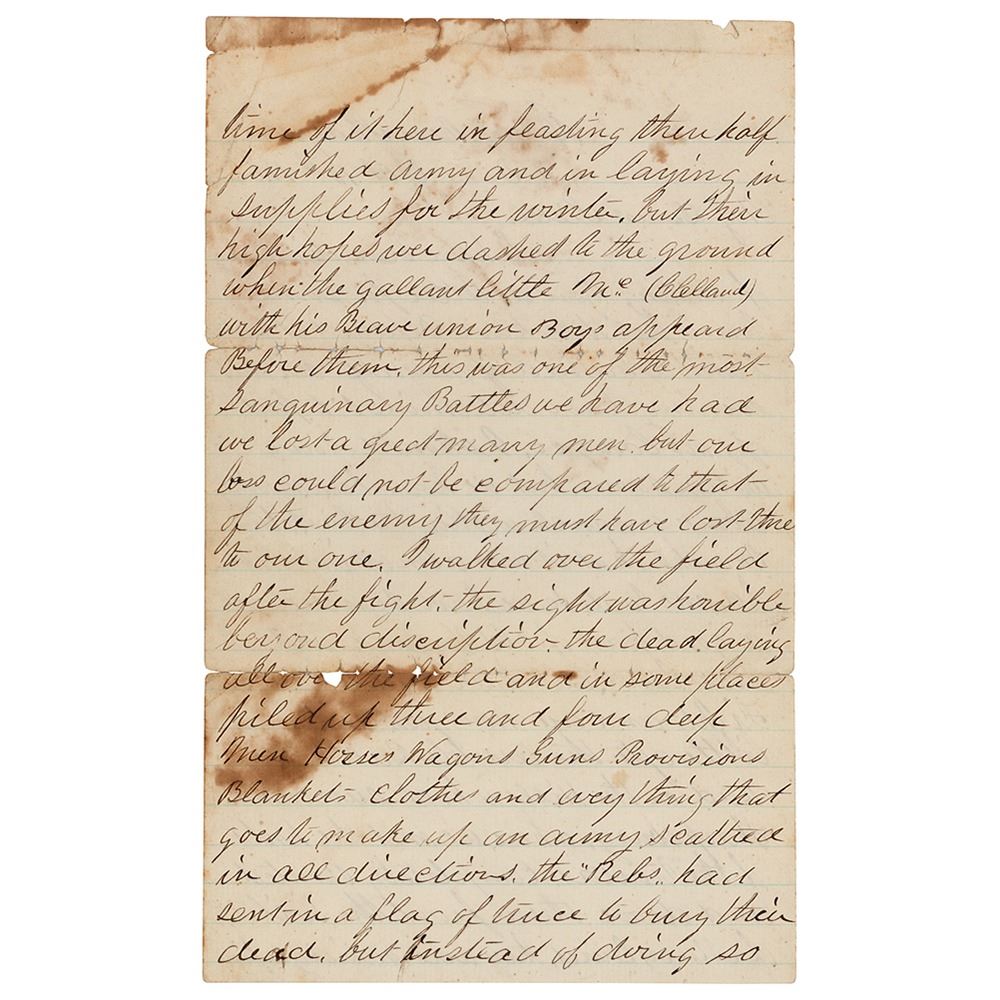 time of it here in feasting their half
famished army and in laying in
supplies for the winter. but their
high hopes wer dashed to the ground
when the gallant little Mc (Clelland)
with his Brave union Boys appeard
Before them. this was one of the most
sanguinary Battles we have had
we lost a great many men. but our
loss could not be compared to that
of the enemy they must have lost three
to our one. I walked over the field
after the fight. the sight was horrible
beyond discription. the dead laying
all over the field and in some places
piled up three and four deep
Men Horses Wagons Guns Provisions
Blankets clothes and evey thing that
goes to make up an army scatterd
in all directions. the "Rebs" had
sent in a flag of truce to bury their
dead. but instead of doing so